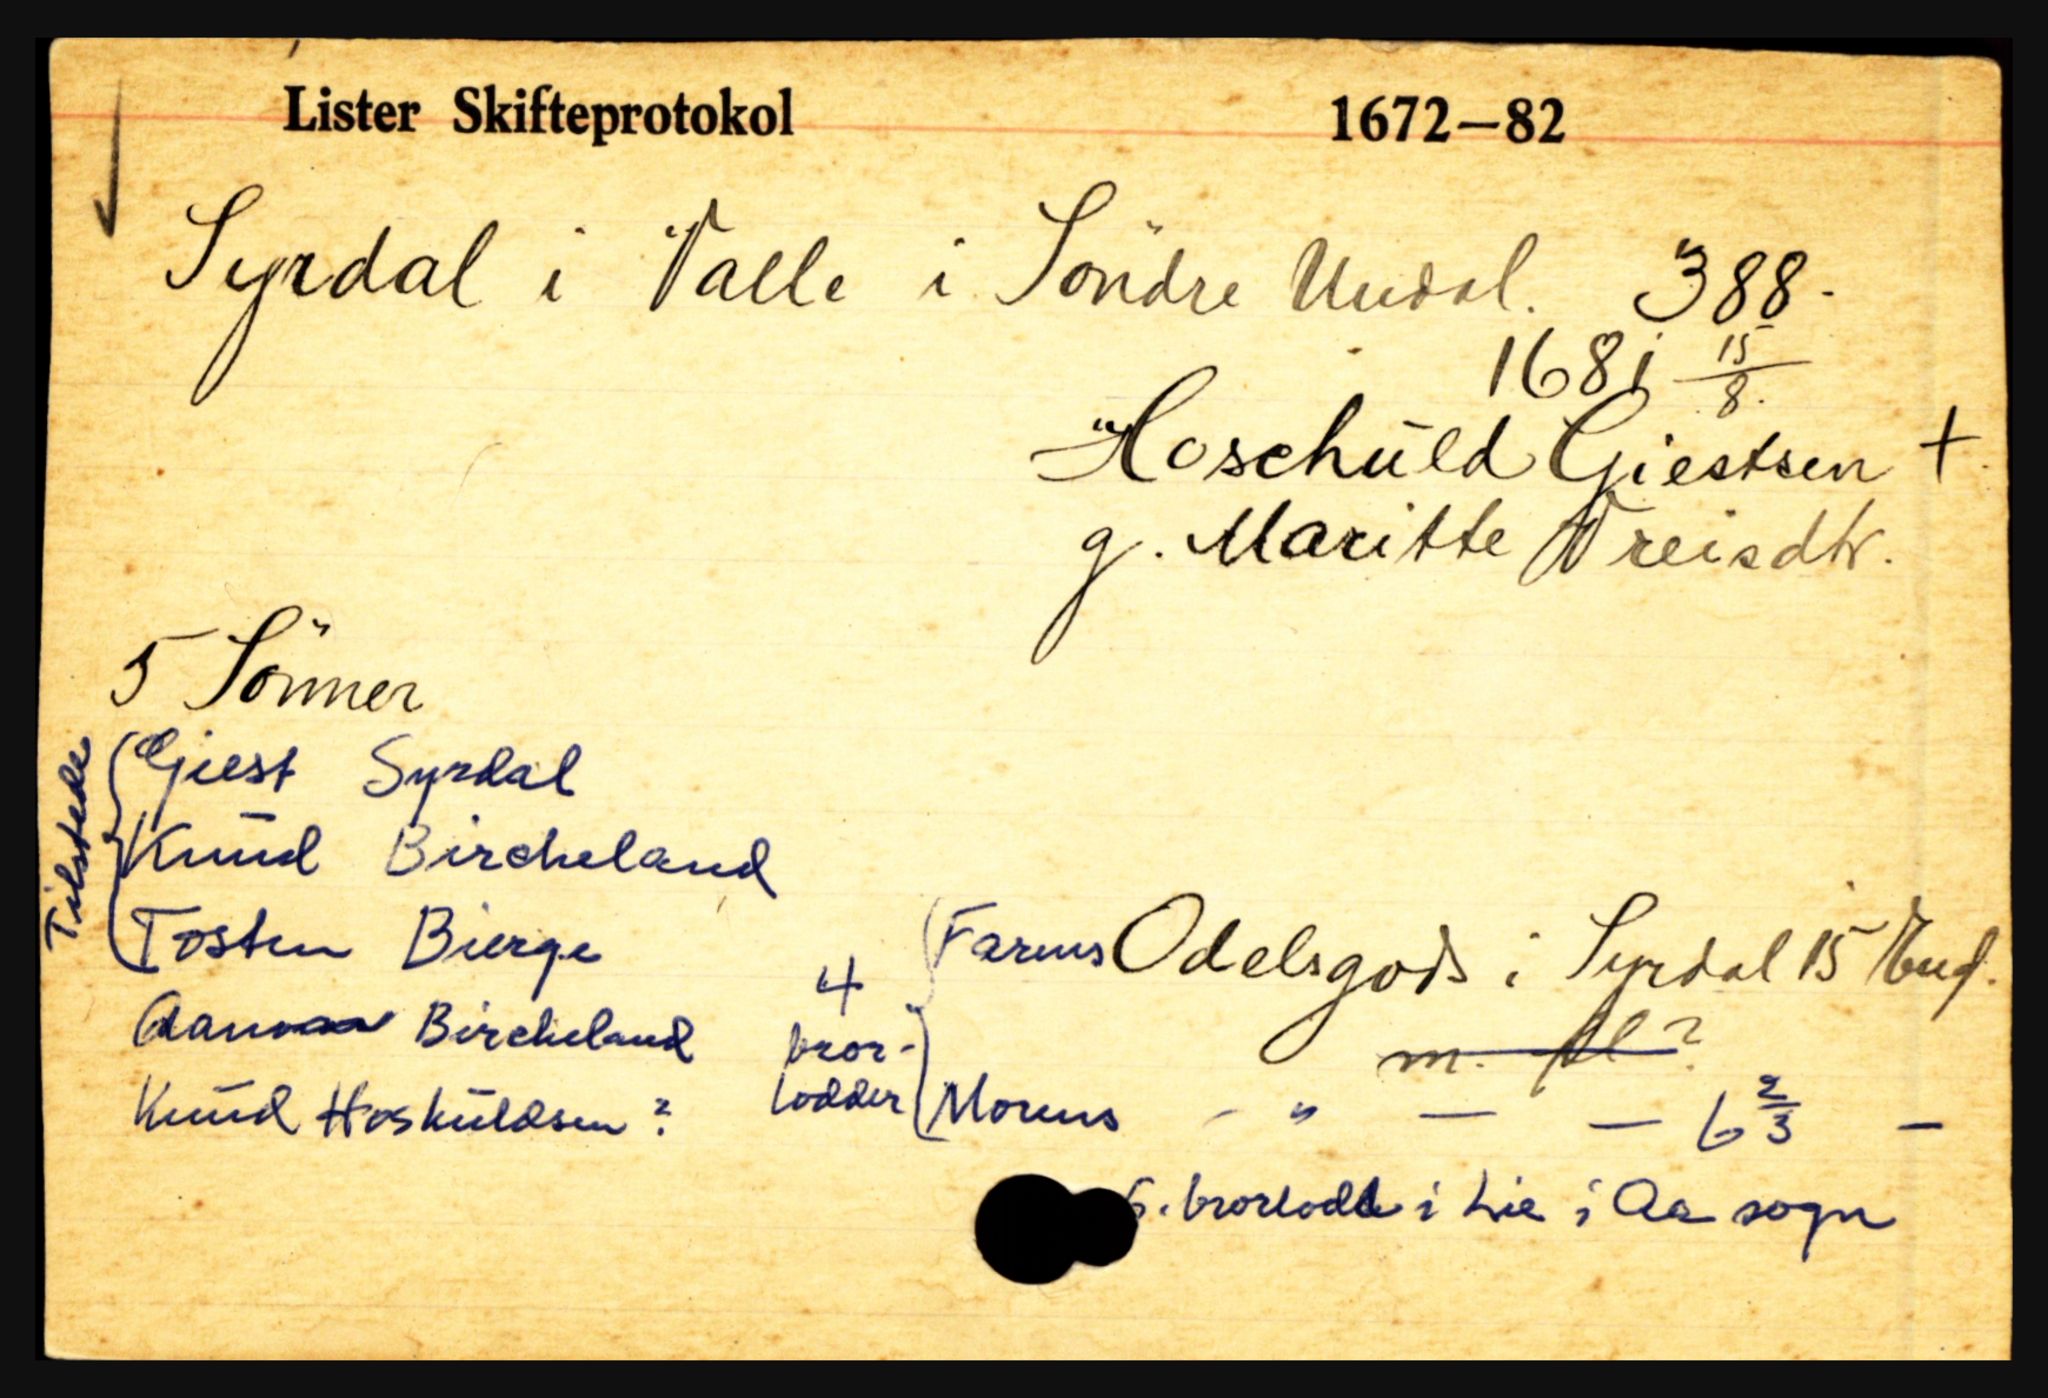 Lister Skifteprotokol 1672—82
Syrdal i Valle i Söndre Undal. 388.
1681 15/8.
Hoschŭld Giestsen +
g. Maritte Treisdtr.
5 Sönner
Tilstede
Giest Syrdal
Knŭd Bircheland
Tosten Bierge
Bircheland
Knŭd Hoskŭldsen?
4 bror-
lodder
Farens Odelsgods i Syrdal 15 Eng.
m. fl?
Morens - " — — 6 2/3 —
5. brorlodd i Lie i Aa sogn